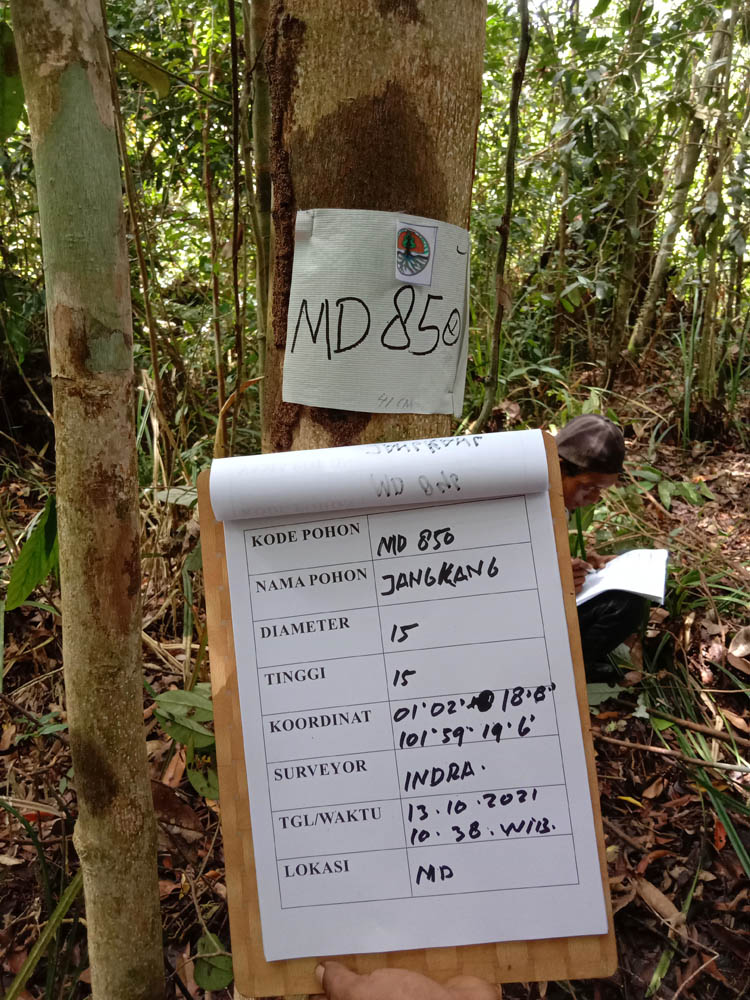 MD 850
41 CM
KODE POHON MD 850
NAMA POHON JANGKANG
DIAMETER 15
TINGGI 15
KOORDINAT 01°02' 18.8"
101°59'19.6'
SURVEYOR INDRA.
TGL/WAKTU 13.10.2021
10.38.WIB.
LOKASI MD